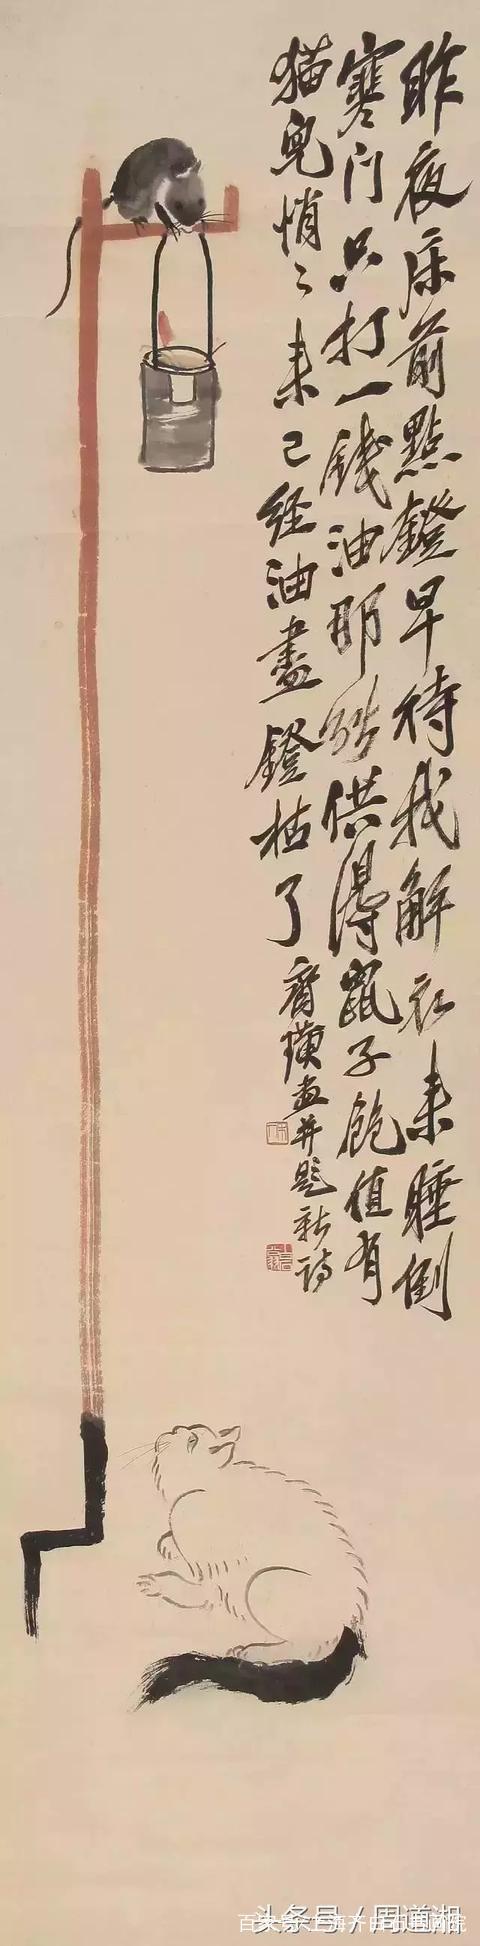 昨夜床前點鐙早待我解衣来睡倒
寒门只打一錢油那能供得鼠子飽值有
猫兒悄〻来已經油盡鐙枯了
齊璜畫并題新詩
头条号 / 周道湘